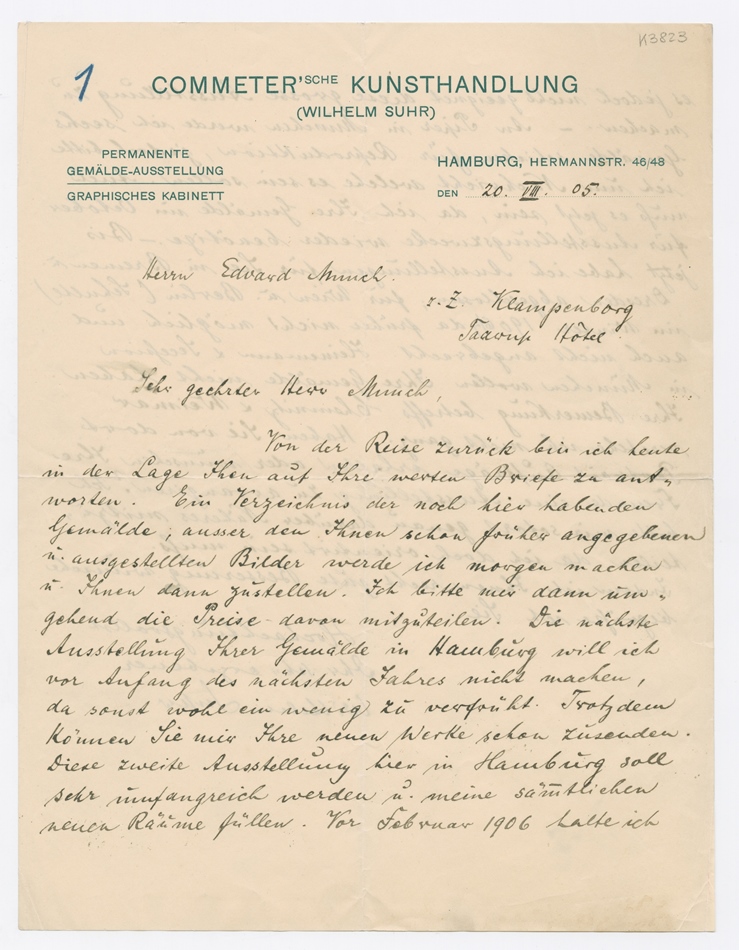 K3823
1
COMMETER'SCHE KUNSTHANDLUNG
(WILHELM SUHR)
PERMANENTE
GEMÄLDE-AUSSTELLUNG
GRAPHISCHES KABINETT
HAMBURG, HERMANNSTR. 46/48
DEN 20. VIII. 05.
Herrn Edvard Munch.
z. Z. Klampenborg
Taarup Hôtel
Sehr geehrter Herr Munch,
Von der Reise zurück bin ich heute
in der Lage Ihen auf Ihre werten Briefe zu ant-
worten. Ein Verzeichnis der noch hier habenden
Gemälde, ausser den Ihnen schon früher angegebenen
u. ausgestellten Bilder werde ich morgen machen
u. Ihnen dann zustellen. Ich bitte mir dann um-
gehend die Preise davon mitzuteilen. Die nächste
Ausstellung Ihrer Gemälde in Hamburg will ich
vor Anfang des nächsten Jahres nicht machen,
da sonst wohl ein wenig zu verfrüht. Trotzdem
können Sie mir Ihre neuen Werke schon zusenden.
Diese zweite Ausstellung hier in Hamburg soll
sehr umfangreich werden u. meine sämtlichen
neuen Räume füllen. Vor Februar 1906 halte ich